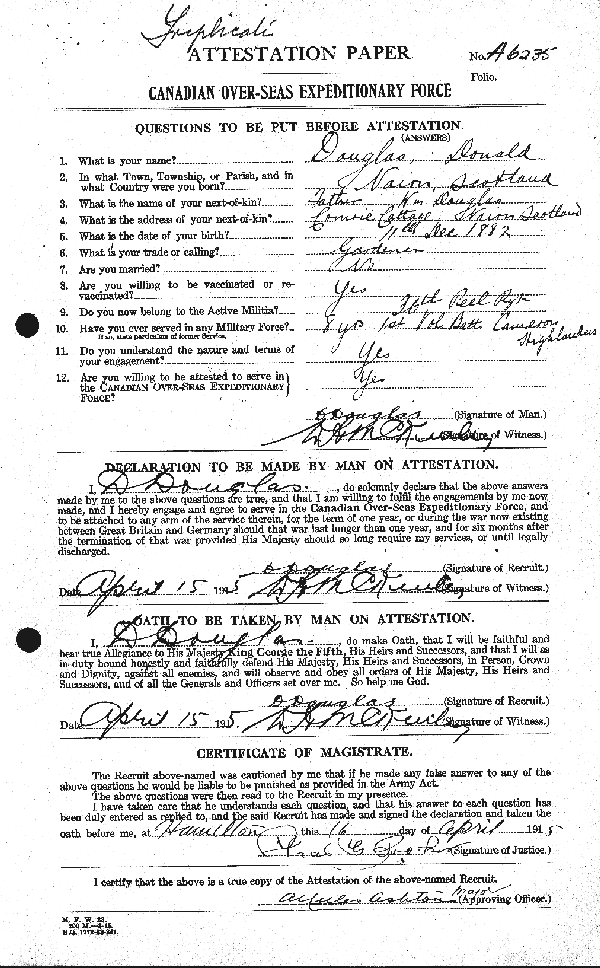 Triplicate
ATTESTATION PAPER
No. A6235
Folio.
CANADIAN OVER-SEAS EXPEDITIONARY FORCE
QUESTIONS TO BE PUT BEFORE ATTESTATION.
(ANSWERS)
1. What is your name? Douglas, Donald
2. In what Town, Township, or Parish, and in
what Country were you born? Nairn, Scotland
3. What is the name of your next-of-kin? Father Wm Douglas
4. What is the address of your next-of-kin? Comrie Cottage, Nairn Scotland
5. What is the date of your birth? 11th Dec 1882
6. What is your trade or calling? Gardener
7. Are you married? No
8. Are you willing to be vaccinated or re-
vaccinated? Yes
9. Do you now belong to the Active Militia?
10. Have you ever served in any Military Force? 8 yrs 1st Vol Batt. Cameron Highlanders
If so, state particulars of former Service.
11. Do you understand the nature and terms of
your engagement? Yes
12. Are you willing to be attested to serve in
the CANADIAN OVER-SEAS EXPEDITIONARY
FORCE? Yes
D Douglas (Signature of Man.)
(Signature of Witness.)
DECLARATION TO BE MADE BY MAN ON ATTESTATION.
I, D Douglas., do solemnly declare that the above answers
made by me to the above questions are true, and that I am willing to fulfil the engagements by me now
made, and I hereby engage and agree to serve in the Canadian Over-Seas Expeditionary Force, and
to be attached to any arm of the service therein, for the term of one year, or during the war now existing
between Great Britain and Germany should that war last longer than one year, and for six months after
the termination of that war provided His Majesty should so require my services, or until legally
discharged.
D Douglas (Signature of Recruit.)
Date April 15 1915 (Signature of Witness.)
OATH TO BE TAKEN BY MAN ON ATTESTATION.
I, D Douglas., do make Oath, that I will be faithful and
bear true Allegiance to His Majesty King George the Fifth, His Heirs and Successors, and that I will as
in duty bound honestly and faithfully defend His Majesty, His Heirs and Successors, in Person, Crown
and Dignity, against all enemies, and will observe and obey all orders of His Majesty, His Heirs and
Successors, and of all the Generals and Officers set over me. So help me God.
D Douglas (Signature of Recruit.)
Date April 15 1915. (Signature of Witness.)
CERTIFICATE OF MAGISTRATE.
The Recruit above-named was cautioned by me that if he made any false answer to any of the
above questions he would be liable to be punished as provided in the Army Act.
The above questions were then read to the Recruit in my presence.
I have taken care that he understands each question, and that his answer to each question has
been duly entered as replied to, and the said Recruit has made and signed the declaration and taken the
oath before me, at Hamilton this 16 day of April 1915
(Signature of Justice.)
I certify that the above is a true copy of the Attestation of the above-named Recruit.
Ashton Major (Approving Officer.)
M. F. W. 23.